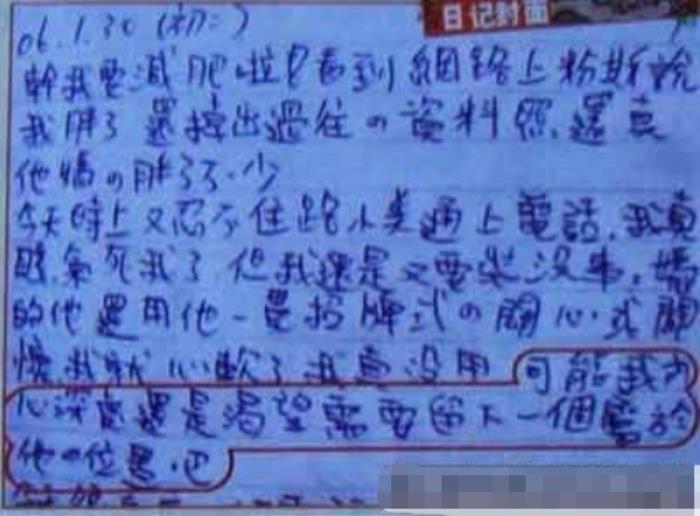 日记封面
06.1.30 (初二)
幹我要減肥啦!看到網路上粉斯說
我胖了 還撐出過往の資料照.還真
他媽の胖了不少
今天晚上又忍不住跟小美通上電話.我真
賤.氣死我了 但我還是又要裝沒事.媽
的他還用他一貫招牌式の關心.式關
懷我就心軟了我真沒用 可能我內
心深處還是渴望需要留下一個屬於
他の位置.吧